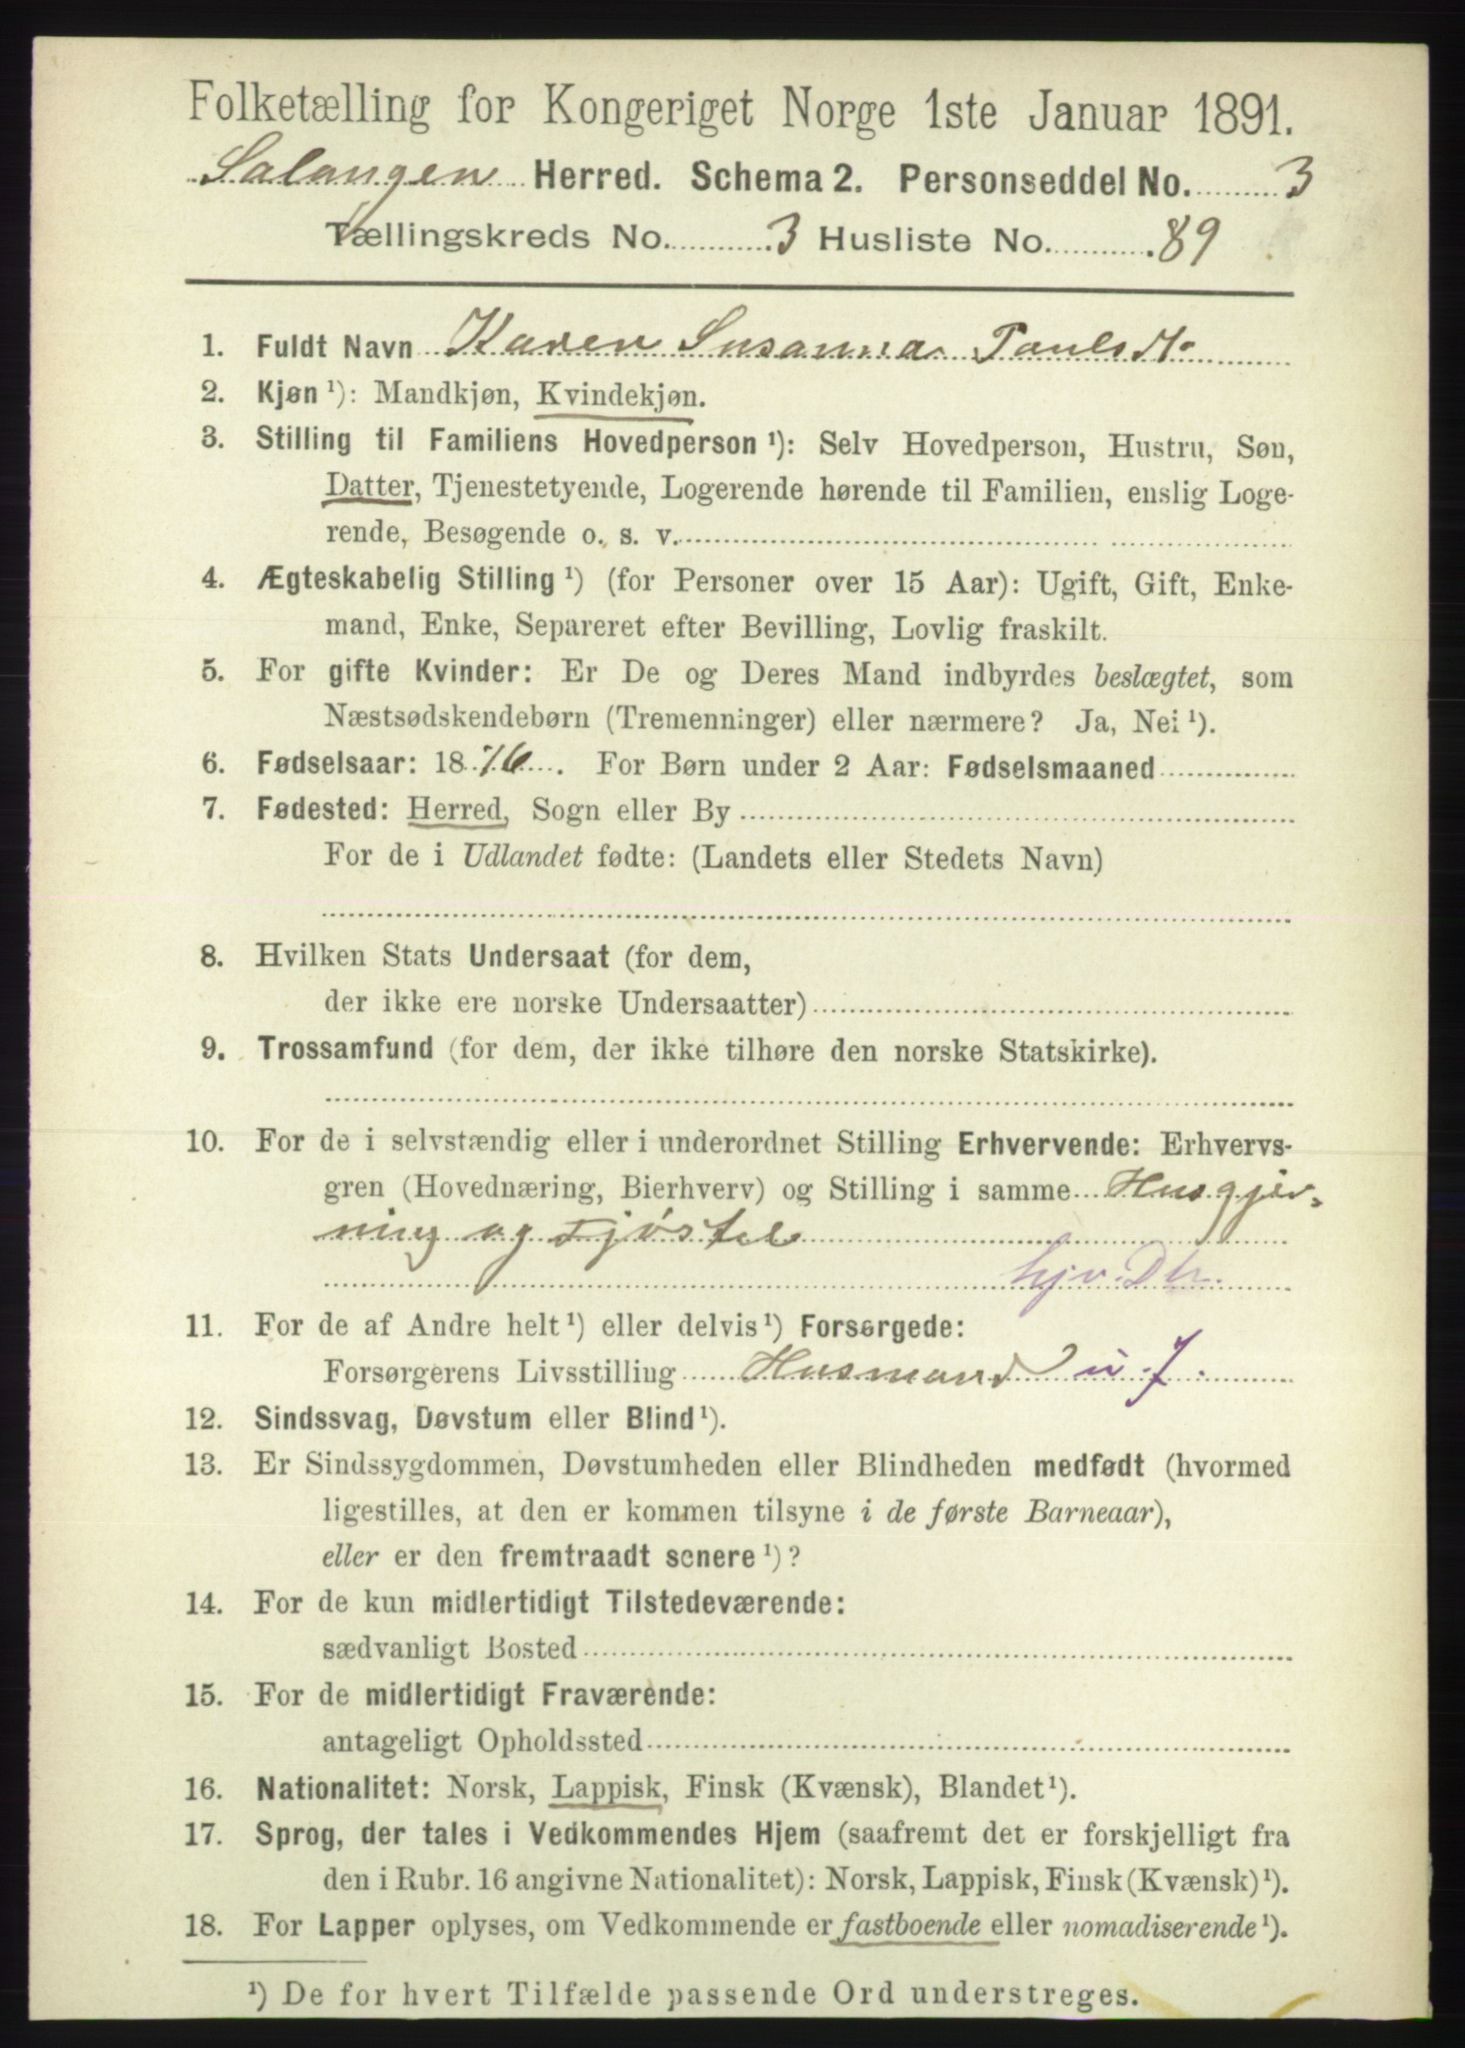 Folketælling for Kongeriget Norge 1ste Januar 1891.
Salangen Herred. Schema 2. Personseddel No. 3
Tællingskreds No. 3 Husliste No. 89
1. Fuldt Navn Karen Susanna Paulsdtr
2. Kjøn ¹): Mandkjøn, Kvindekjøn.
3. Stilling til Familiens Hovedperson ¹): Selv Hovedperson, Hustru, Søn,
Datter, Tjenestetyende, Logerende hørende til Familien, enslig Loge-
rende, Besøgende o. s. v.
4. Ægteskabelig Stilling ¹) (for Personer over 15 Aar): Ugift, Gift, Enke-
mand, Enke, Separeret efter Bevilling, Lovlig fraskilt.
5. For gifte Kvinder: Er De og Deres Mand indbyrdes beslægtet, som
Næstsødskendebørn (Tremenninger) eller nærmere? Ja, Nei ¹).
6. Fødselsaar: 1876. For Børn under 2 Aar: Fødselsmaaned
7. Fødested: Herred, Sogn eller By
For de i Udlandet fødte: (Landets eller Stedets Navn)
8. Hvilken Stats Undersaat (for dem,
der ikke ere norske Undersaatter)
9. Trossamfund (for dem, der ikke tilhøre den norske Statskirke).
10. For de i selvstændig eller i underordnet Stilling Erhvervende: Erhvervs-
gren (Hovednæring, Bierhverv) og Stilling i samme Husgjer-
ning og Fjøstel
hjv. Dtr.
11. For de af Andre helt ¹) eller delvis ¹) Forsørgede:
Forsørgerens Livsstilling Husmand u. J.
12. Sindssvag, Døvstum eller Blind ¹).
13. Er Sindssygdommen, Døvstumheden eller Blindheden medfødt (hvormed
ligestilles, at den er kommen tilsyne i de første Barneaar),
eller er den fremtraadt senere ¹)?
14. For de kun midlertidigt Tilstedeværende:
sædvanligt Bosted
15. For de midlertidigt Fraværende:
antageligt Opholdssted
16. Nationalitet: Norsk, Lappisk, Finsk (Kvænsk), Blandet ¹).
17. Sprog, der tales i Vedkommendes Hjem (saafremt det er forskjelligt fra
den i Rubr. 16 angivne Nationalitet): Norsk, Lappisk, Finsk (Kvænsk) ¹).
18. For Lapper oplyses, om Vedkommende er fastboende eller nomadiserende ¹).
¹) De for hvert Tilfælde passende Ord understreges.